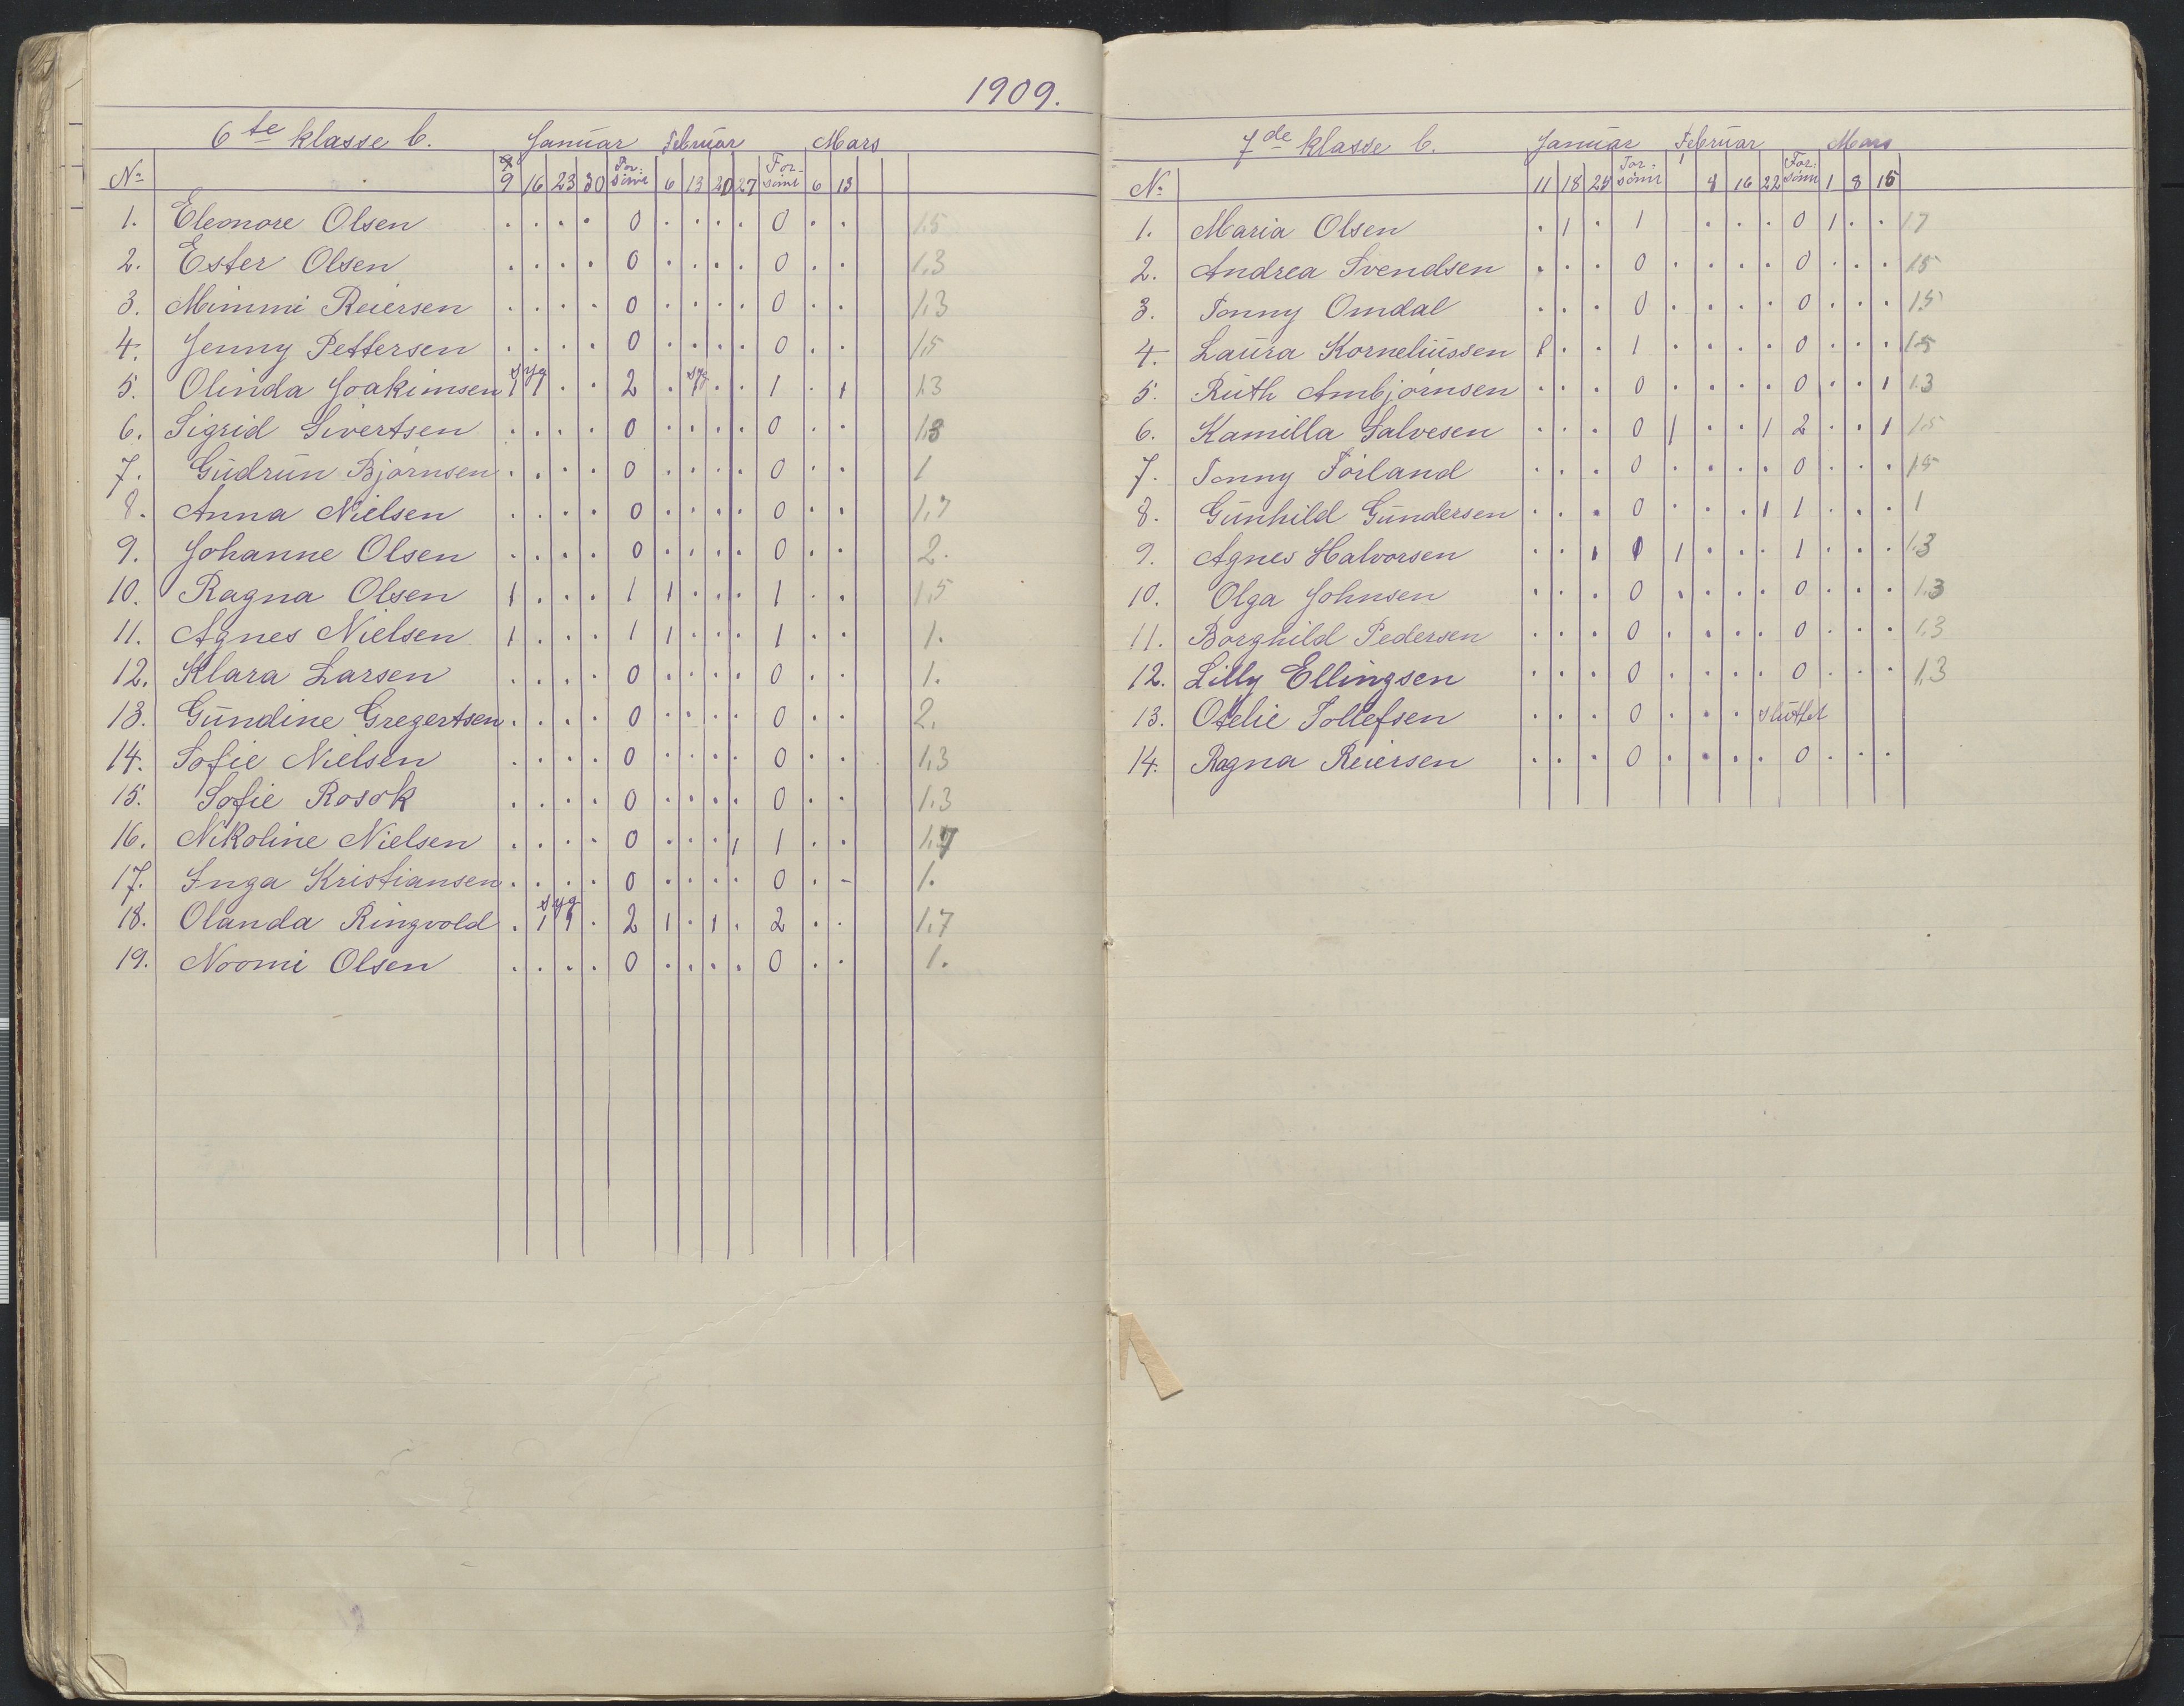 1909.
6te klasse b. Januar Februar Mars
No 9 16 23 30 For: sömt 6 13 20 27 For- sömt 6 13
1. Eleonore Olsen . . . . 0 . . . . 0 . . 1.5
2. Ester Olsen . . . . 0 . . . . 0 . . 1.3
3. Mimmi Reiersen . . . . 0 . . . . 0 . . 1.3
4. Jenny Pettersen . . . . 0 . . . . 0 . . 1.5
5. Olinda Joakimsen syg 1 1 . . 2 . syg 1 . . 1 . 1 1.3
6. Sigrid Sivertsen . . . . 0 . . . . 0 . . 1.3
7. Gudrun Bjørnsen . . . . 0 . . . . 0 . . 1
8. Anna Nielsen . . . . 0 . . . . 0 . . 1.7
9. Johanne Olsen . . . . 0 . . . . 0 . . 2.
10. Ragna Olsen 1 . . . 1 1 . . . 1 . . 1.5
11. Agnes Nielsen 1 . . . 1 1 . . . 1 . . 1.
12. Klara Larsen . . . . 0 . . . . 0 . . 1.
13. Gundine Gregertsen . . . . 0 . . . . 0 . . 2.
14. Sofie Nielsen . . . . 0 . . . . 0 . . 1.3
15. Sofie Rosok . . . . 0 . . . . 0 . . 1.3
16. Nikoline Nielsen . . . . 0 . . . 1 1 . . 1.7
17. Inga Kristiansen . . . . 0 . . . . 0 . - 1.
18. Olanda Ringvold . syg 1 1 . 2 1 . 1 . 2 . . 1.7
19. Noomi Olsen . . . . 0 . . . . 0 . . 1.
7de klasse b. Januar Februar Mars
No 11 18 25 For- sömt 1 8 16 22 For: sömt 1 8 15
1. Maria Olsen . 1 . 1 . . . 0 1 . . 1.7
2. Andrea Svendsen . . . 0 . . . . 0 . . . 1.5
3. Tonny Omdal . . . 0 . . . . 0 . . . 1.5
4. Laura Korneliussen 1 . . 1 . . . . 0 . . . 1.5
5. Ruth Ambjørnsen . . . 0 . . . . 0 . . 1 1.3
6. Kamilla Salvesen . . . 0 1 . . 1 2 . . 1 1.5
7. Tonny Förland . . . 0 . . . . 0 . . . 1.5
8. Gunhild Gundersen . . . 0 . . . 1 1 . . . 1
9. Agnes Halvorsen . . 1 1 1 . . . 1 . . . 1.3
10. Olga Johnsen . . . 0 . . . . 0 . . . 1.3
11. Borghild Pedersen . . . 0 . . . . 0 . . . 1.3
12. Lilly Ellingsen . . . 0 . . . . 0 . . . 1.3
13. Otelie Tollefsen . . . 0 . . . sluttet
14. Ragna Reiersen . . . 0 . . . . 0 . . .